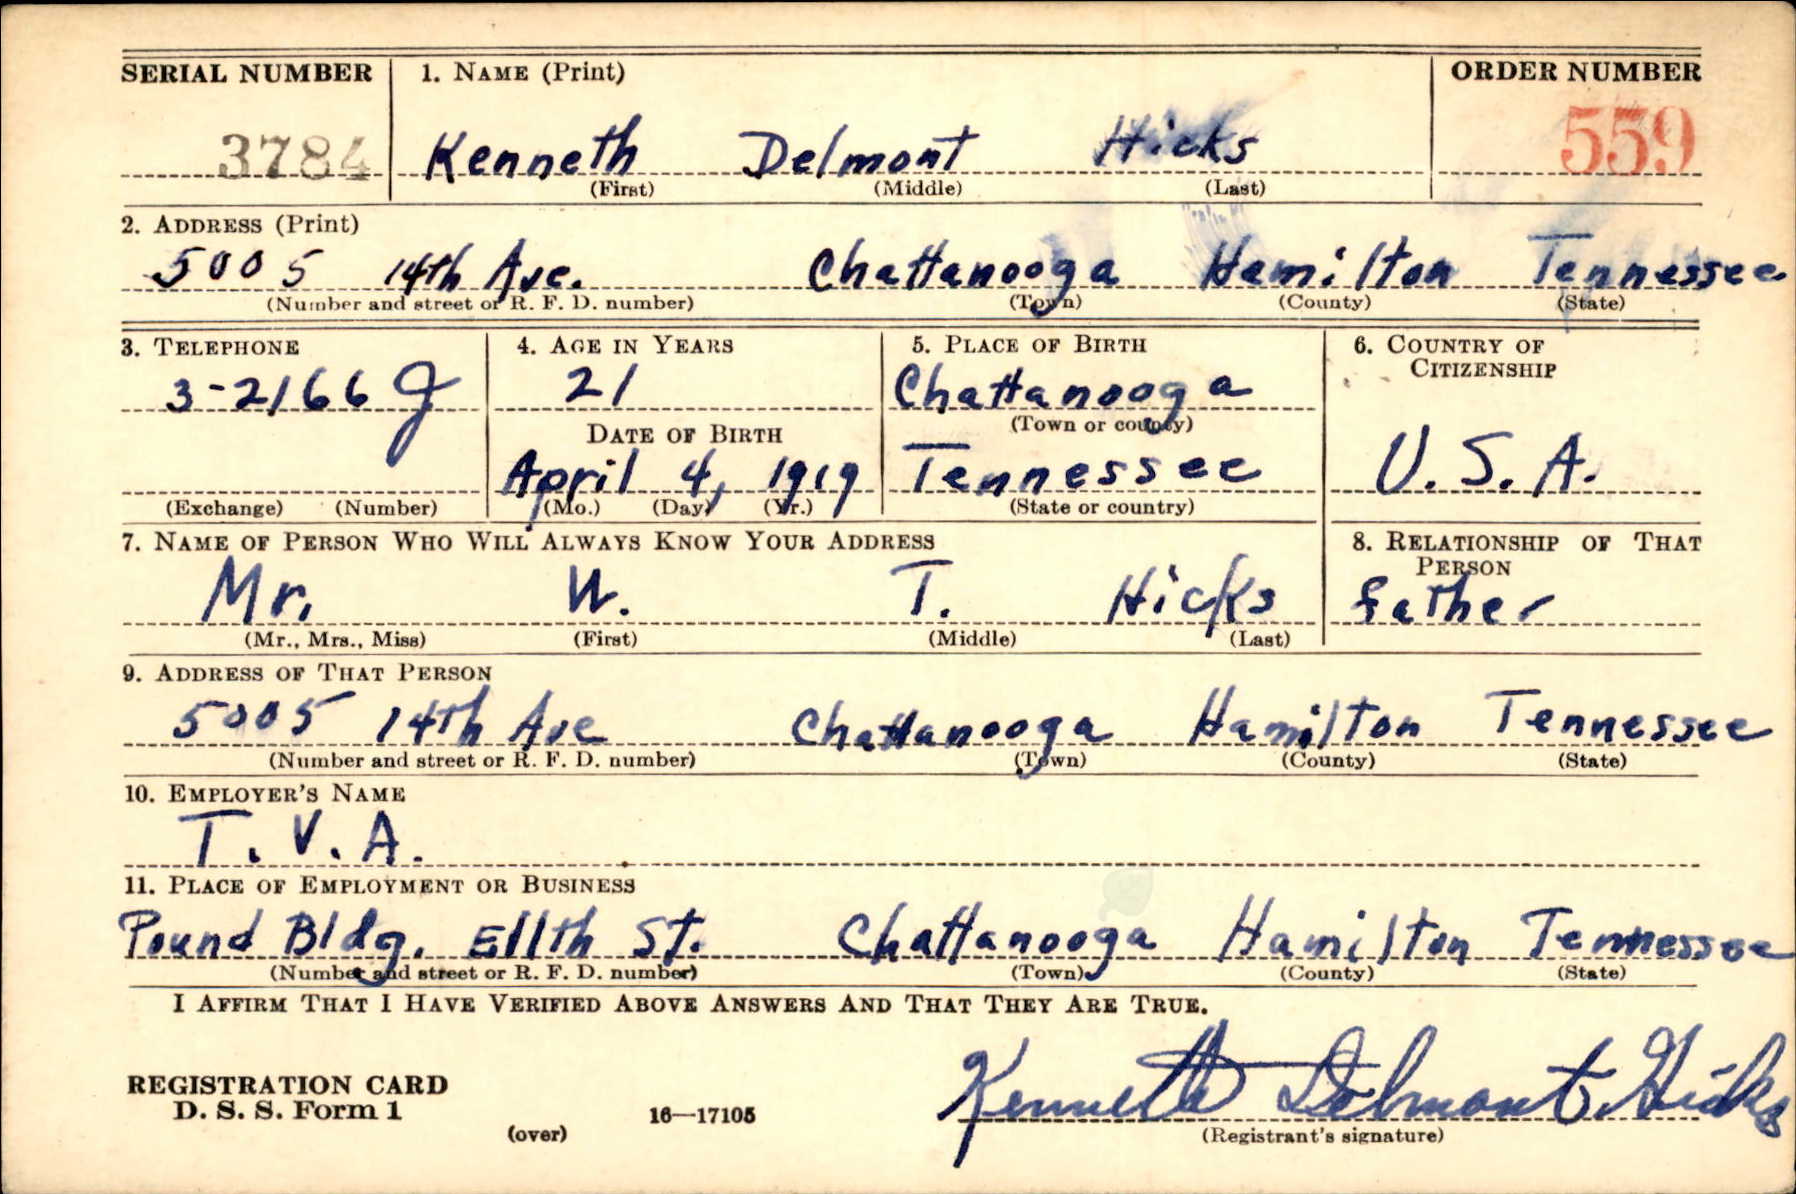 SERIAL NUMBER 1. NAME (Print) ORDER NUMBER
3784 Kenneth Delmont Hicks 559
(First) (Middle) (Last)
2. ADDRESS (Print)
5005 14th Ave. Chattanooga Hamilton Tennessee
(Number and street or R. F. D. number) (Town) (County) (State)
3. TELEPHONE 4. AGE IN YEARS 5. PLACE OF BIRTH 6. COUNTRY OF CITIZENSHIP
3-2166 J 21 Chattanooga
DATE OF BIRTH (Town or county)
April 4, 1919 Tennessee U.S.A.
(Exchange) (Number) (Mo.) (Day) (Yr.) (State or country)
7. NAME OF PERSON WHO WILL ALWAYS KNOW YOUR ADDRESS 8. RELATIONSHIP OF THAT PERSON
Mr. W. T. Hicks father
(Mr., Mrs., Miss) (First) (Middle) (Last)
9. ADDRESS OF THAT PERSON
5005 14th Ave Chattanooga Hamilton Tennessee
(Number and street or R. F. D. number) (Town) (County) (State)
10. EMPLOYER'S NAME
T.V.A.
11. PLACE OF EMPLOYMENT OR BUSINESS
Pound Bldg. E 11th St. Chattanooga Hamilton Tennessee
(Number and street or R. F. D. number) (Town) (County) (State)
I AFFIRM THAT I HAVE VERIFIED ABOVE ANSWERS AND THAT THEY ARE TRUE.
REGISTRATION CARD
D. S. S. Form 1 16—17105 Kenneth Delmont Hicks
(over) (Registrant's signature)